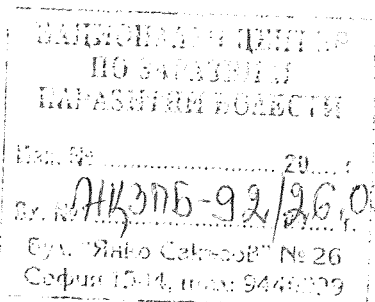 НАЦИОНАЛЕН ЦЕНТЪР
ПО ЗАРАЗНИ И
ПАРАЗИТНИ БОЛЕСТИ
Изх. № ............ 20.... г.
Вх. № НЦЗПБ-92/26.0
Бул. "Янко Сакъзов" № 26
София 1504, тел.